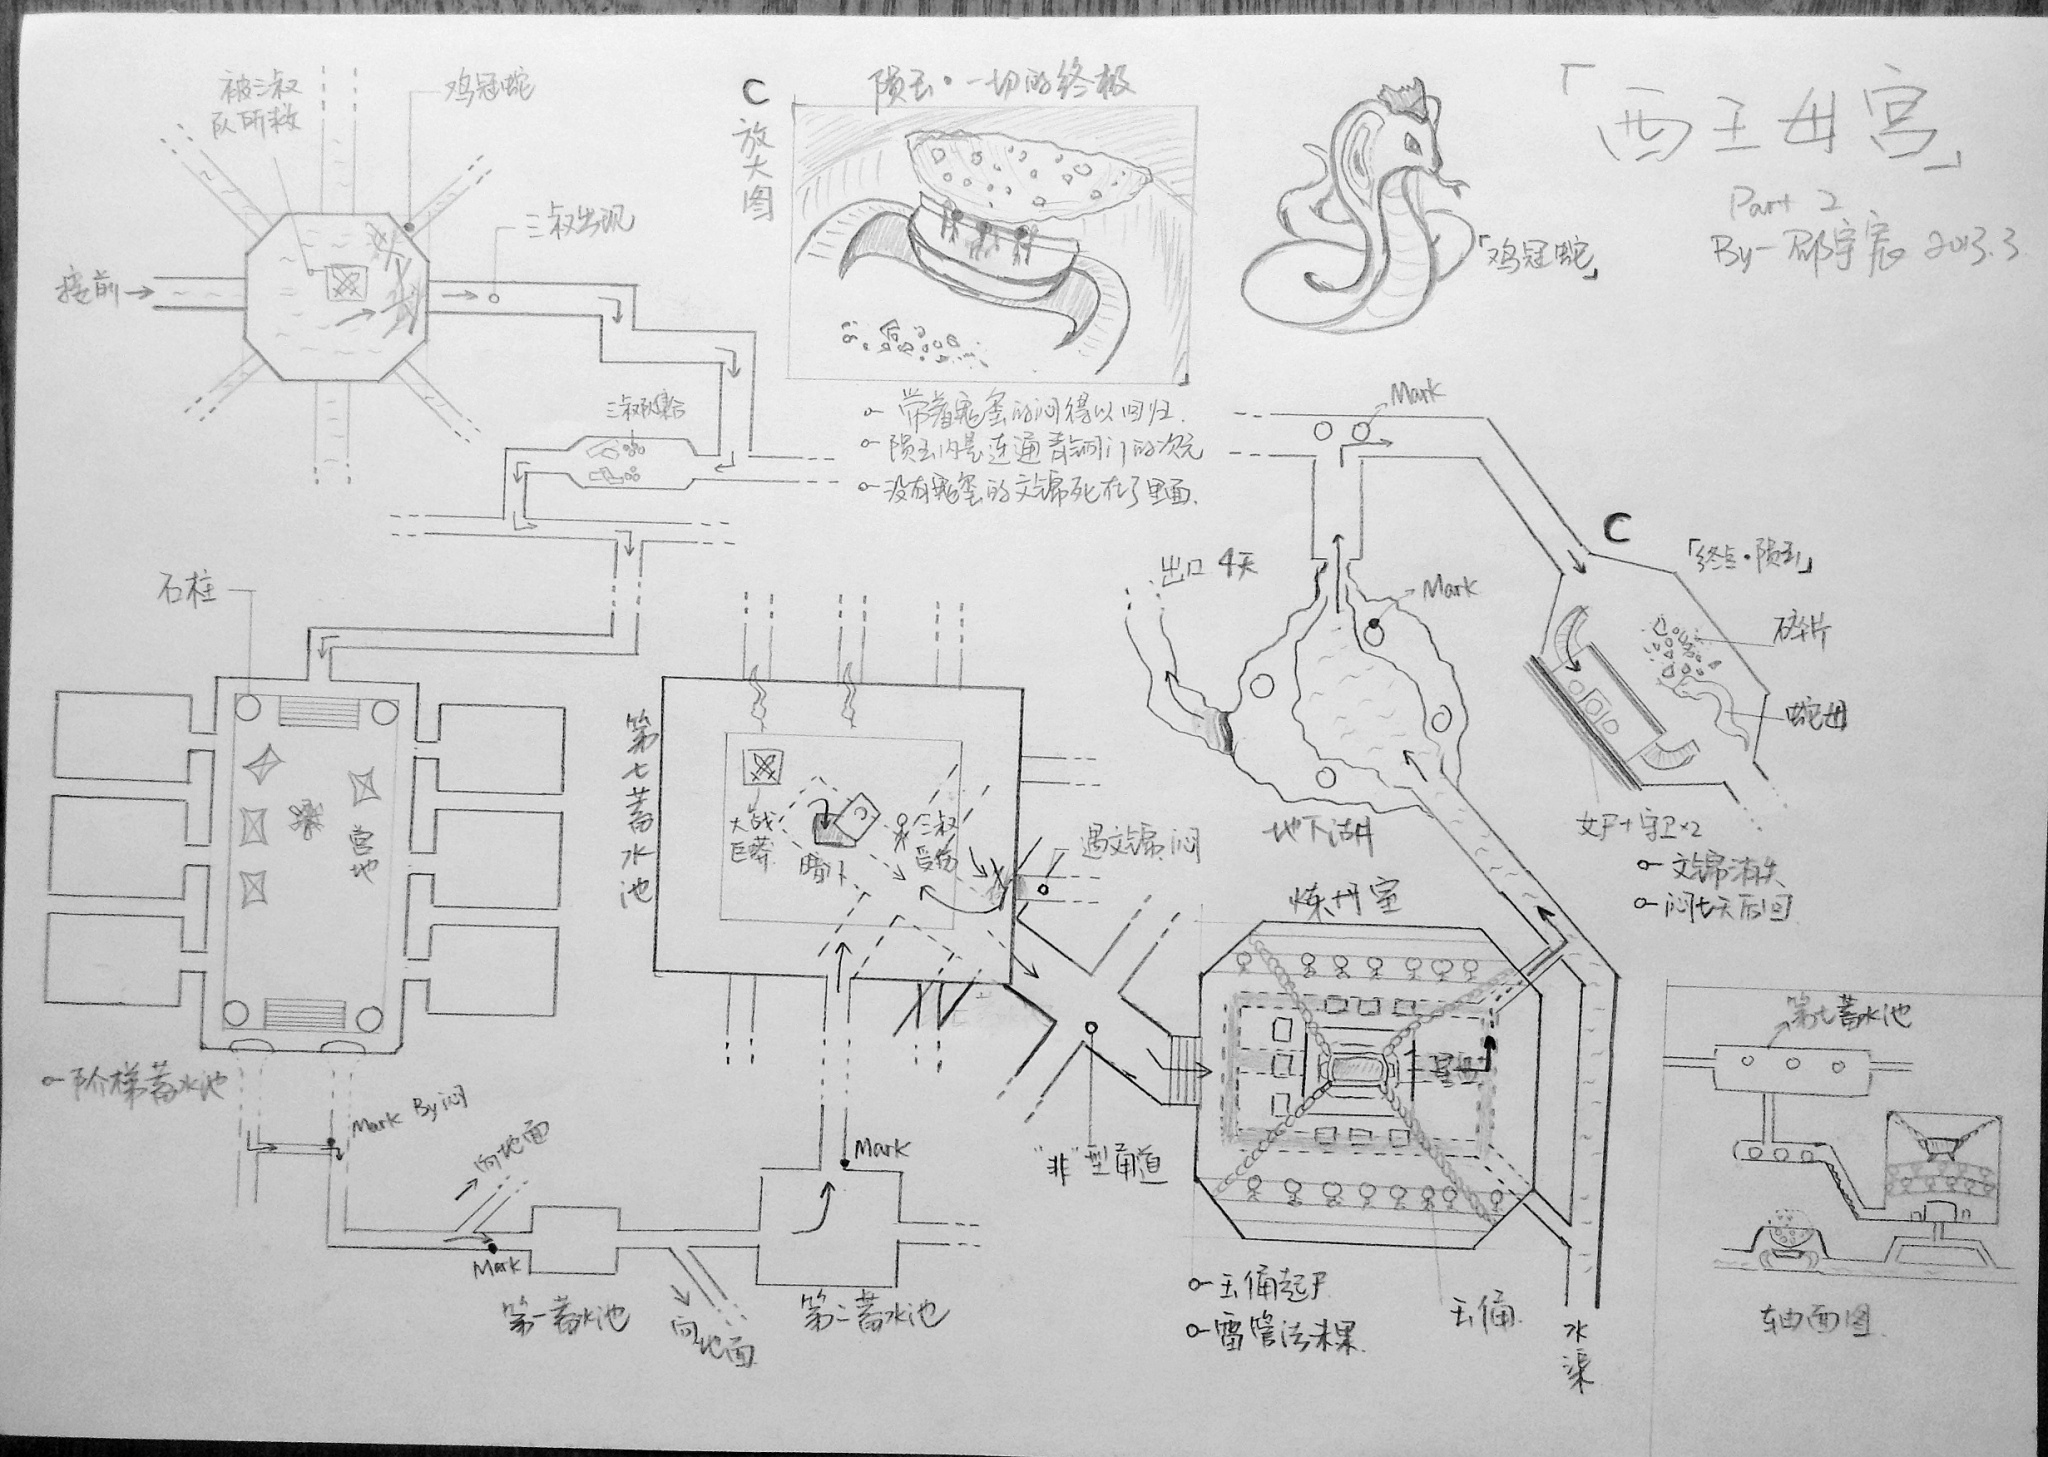 「西王母宫」
Part 2
2013.3
被三叔
队所救
鸡冠蛇
三叔出现
接前
C
放大图
陨玉·一切的终极
「鸡冠蛇」
三叔队集合
带着尾蛋的闷得以回归.
陨玉内是连通青铜门的次元
没有尾蛋的文锦死在了里面.
Mark
C
「终点·陨玉」
碎片
蛇母
出口 4天
Mark
石柱
营地
第七蓄水池
大战
巨蟒
暗卜
三叔
受伤
遇文锦.闷
地下湖
女尸+守卫×2
文锦消失
闷七天后回
炼丹室
阶梯蓄水池
Mark By闷
向地面
Mark
第一蓄水池
向地面
Mark
第二蓄水池
"非"型甬道
玉俑起尸
玉俑
水渠
第七蓄水池
轴面图